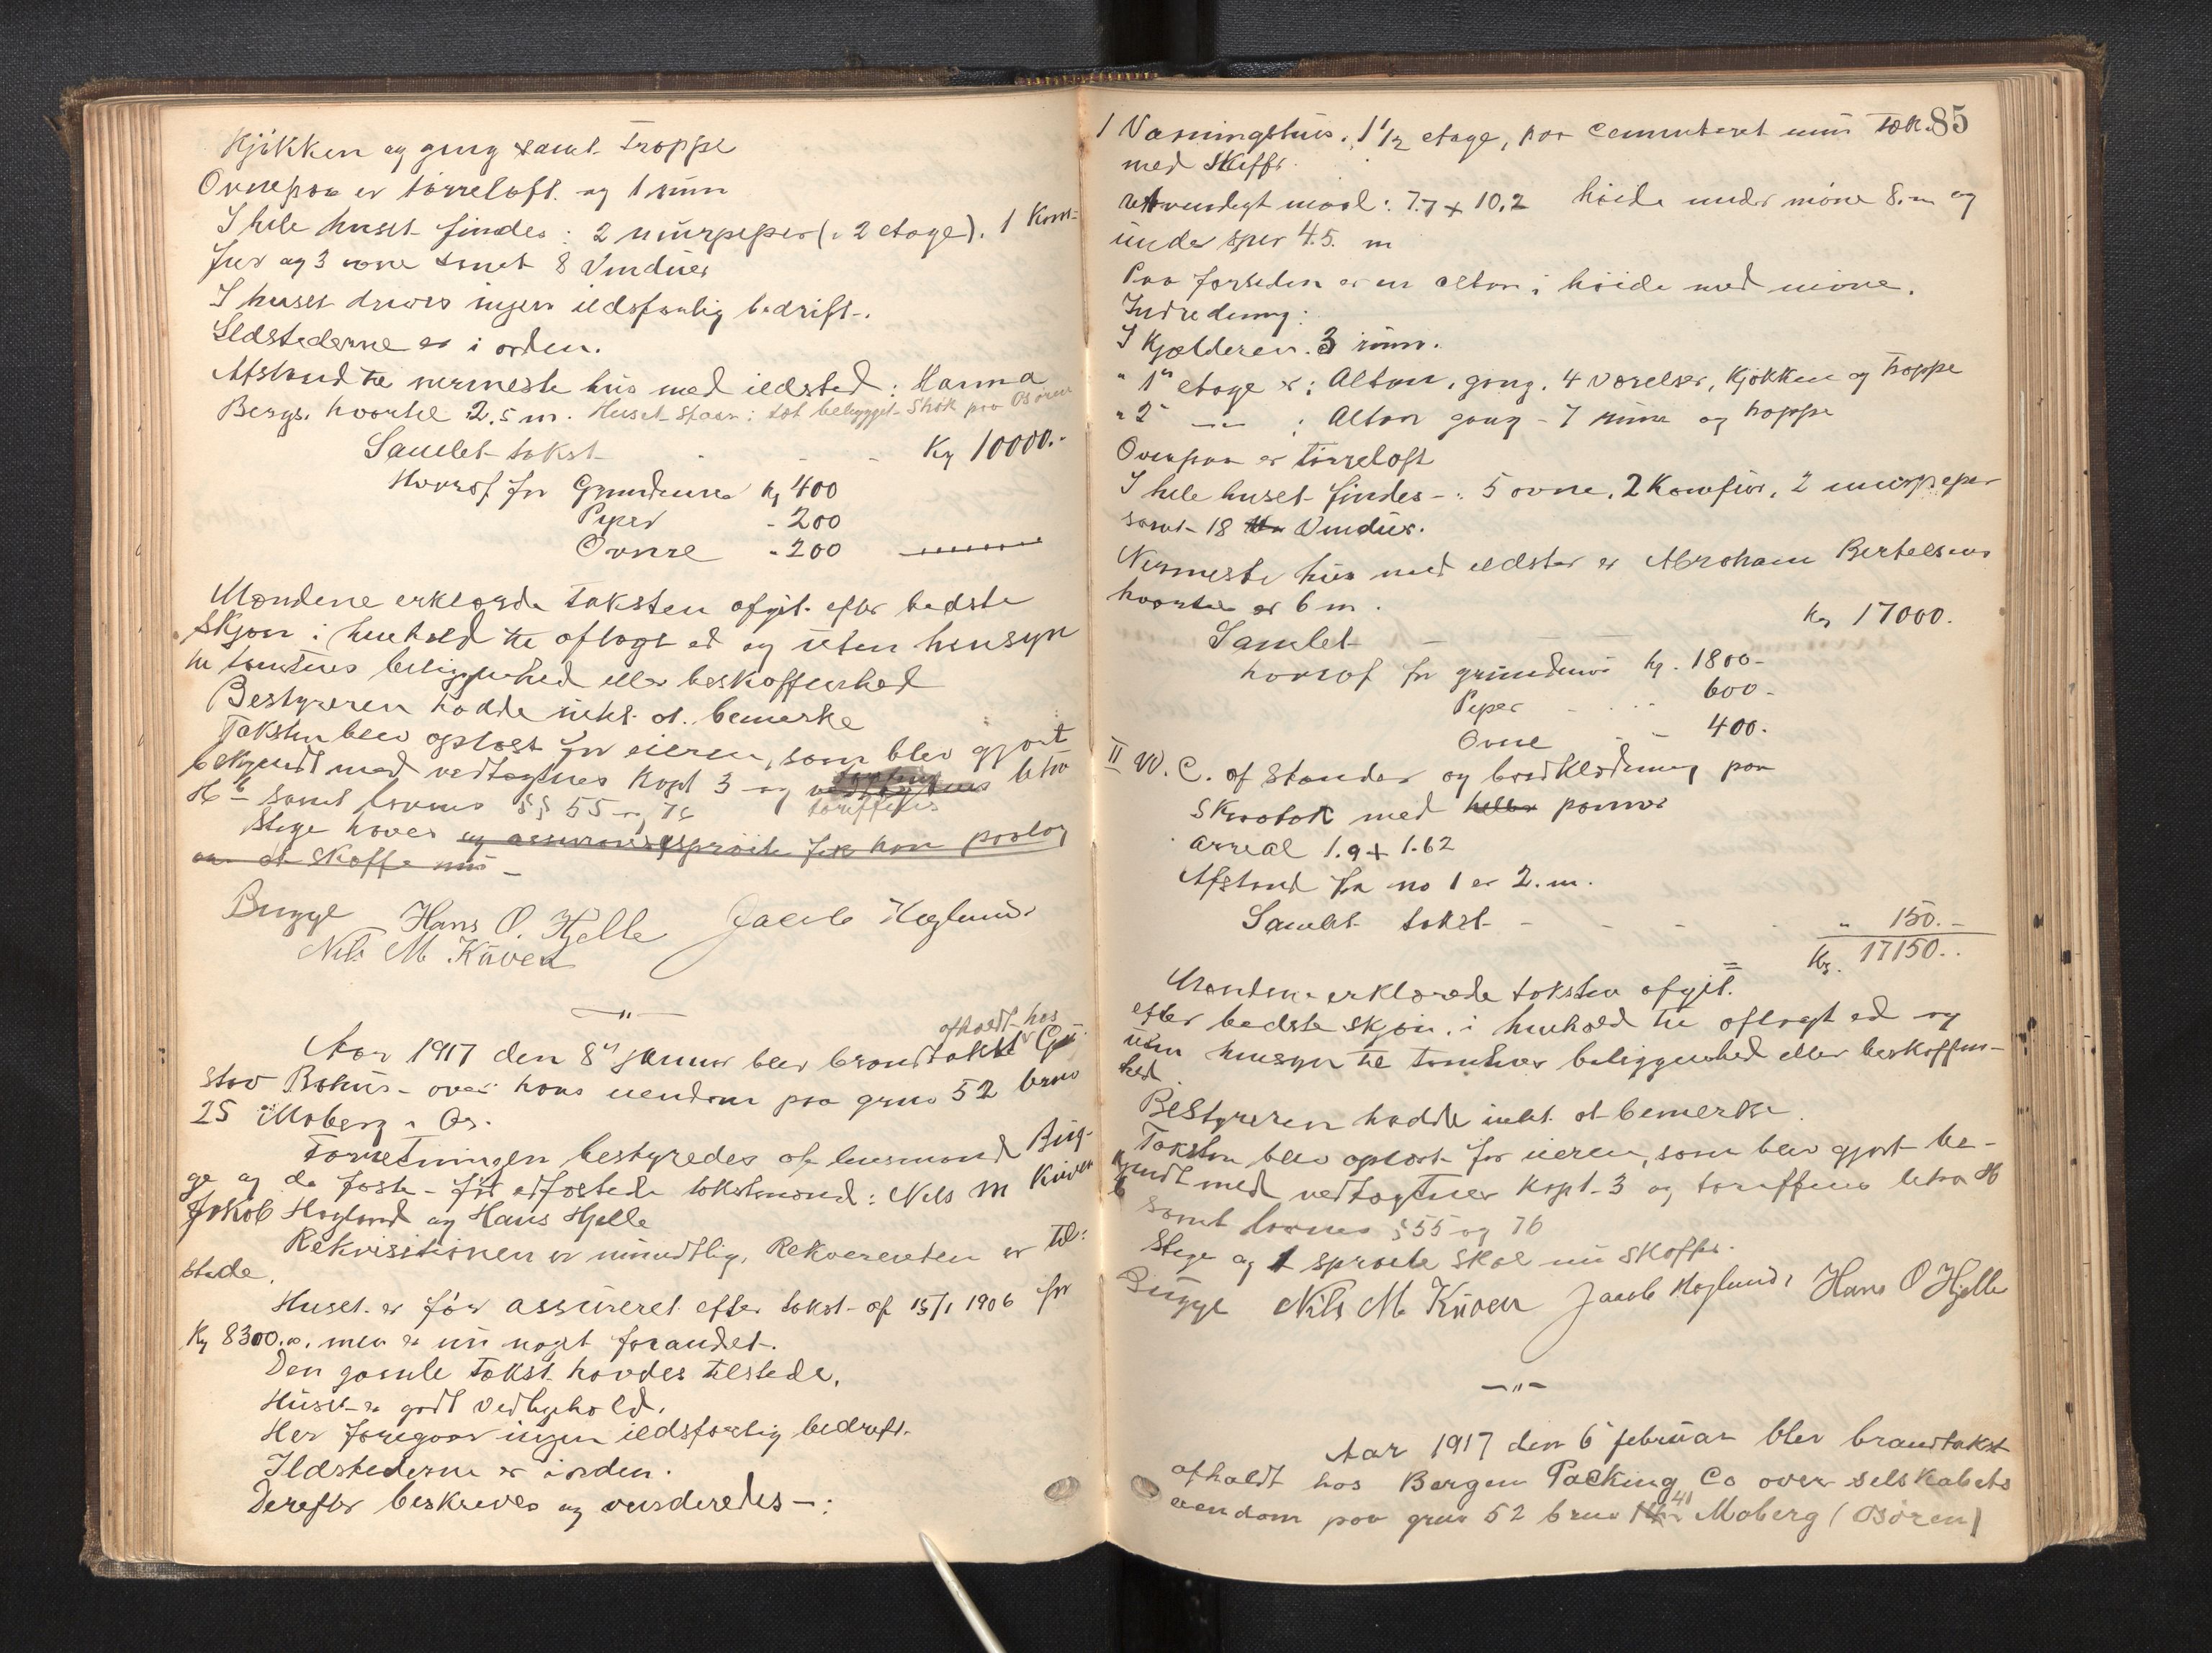 Kjøkken og gang samt Troppe
Ovnepaa er tørreloft og 1 rum
I hele huset findes: 2 murpiper (i 2 etage). 1 Kom-
fur og 3 ovne samt 8 Vinduer
I huset drives ingen ildsfarlig bedrift.
Ildstederne er i orden.
Afstand til nermeste hus med ildsted: Hanna
Bergs. hvortil 2,5 m. Huset staar i tæt bebygget Strøk paa Osøren
Samlet takst - - - Kr 10000.-
Hvoraf for Grundmur Kr 400
Piper - 200
Ovnene - 200
Mændene erklærde taksten afgit efter bedste
Skjøn i henhold til aflagt ed og uten hensyn
til tomtens beliggenhed eller beskaffenhed
Bestyreren hadde intet at bemerke
Taksten blev oplæst for eieren, som blev gjort
bekjendt med vedtægtenes Kapt 3 og tariffens litra
H b samt lovens §§ 55 og 76
Stige haves og assurancesprøite fik han paalæg
om at skaffe nu -
Bugge Hans O. Hjelle Jacob Haglund
Nils M Kuven
- " -
Aar 1917 den 8de januar blev brandtakst afholdt hos Gu-
stav Bakus - over hans eiendom paa grno 52 brno
25 Moberg i Os.
Forretningen bestyredes af lensmand Bug-
ge og de faste - før edfæstede takstmænd: Nils M Kuven
Jakob Hagland og Hans Hjelle
Rekvisitionen er mundtlig. Rekvirenten er til-
stede.
Huset er før assureret efter takst af 15/1 1906 for
Kr 8300.00. men er nu noget forandret.
Den gamle takst havdes tilstede.
Huset er godt vedligehold.
Her foregaar ingen ildsfarlig bedrift.
Ildstederne er i orden.
Derefter beskreves og vurderedes -:
85
1 Vaaningshus. 1 1/2 etage, paa cementeret mur Tæk.
med Skiffr.
Utvendigt maal: 7.7 + 10.2 høide under møne 8. m og
under sper 4.5. m
Paa forsiden er en altan i høide med møne.
Indredning:
I Kjælderen. 3 rum.
" 1" etage er: Altan, gang. 4 værelser, Kjøkken og Troppe
" 2" -"- : Altan gang - 7 rum og troppe
Ovenpaa er tørreloft
I hele huset findes -: 5 ovne. 2 Komfur. 2 murpiper
samt 18 Vinduer.
Nermeste hus med ildster er Abraham Bertelsens
hvortil er 6 m.
Samlet - - Kr 17000.
hvoraf for grundmur Kr. 1800-
Piper - - 600-
Ovne - - 400.
II W. C. af Stander og bordklædning paa
Skraatak med heller panner
areal 1.9 + 1.62
Afstand fra no 1 er 2. m.
Samlet takst - - - " 150.-
Kr. 17150..
Mændene erklærede taksten afgit
efter bedste skjøn. i henhold til aflagt ed og
uten hensyn til tomtens beliggenhed eller beskaffen-
hed.
Bestyreren hadde intet at bemerke.
Taksten blev oplæst for eieren, som blev gjort be-
kjendt med vedtægtenes Kapt. 3 og tariffens litra H
b samt lovens § 55 og 76
Stige og 1 sprøite skal nu skaffes.
Bugge Nils M Kuven Jacob Haglund Hans O Hjelle
- " -
Aar 1917 den 6 februar blev brandtakst
afholdt hos Bergen Packing Co over selskabets
eiendom paa grno 52 brno 41 Moberg (Osøren)